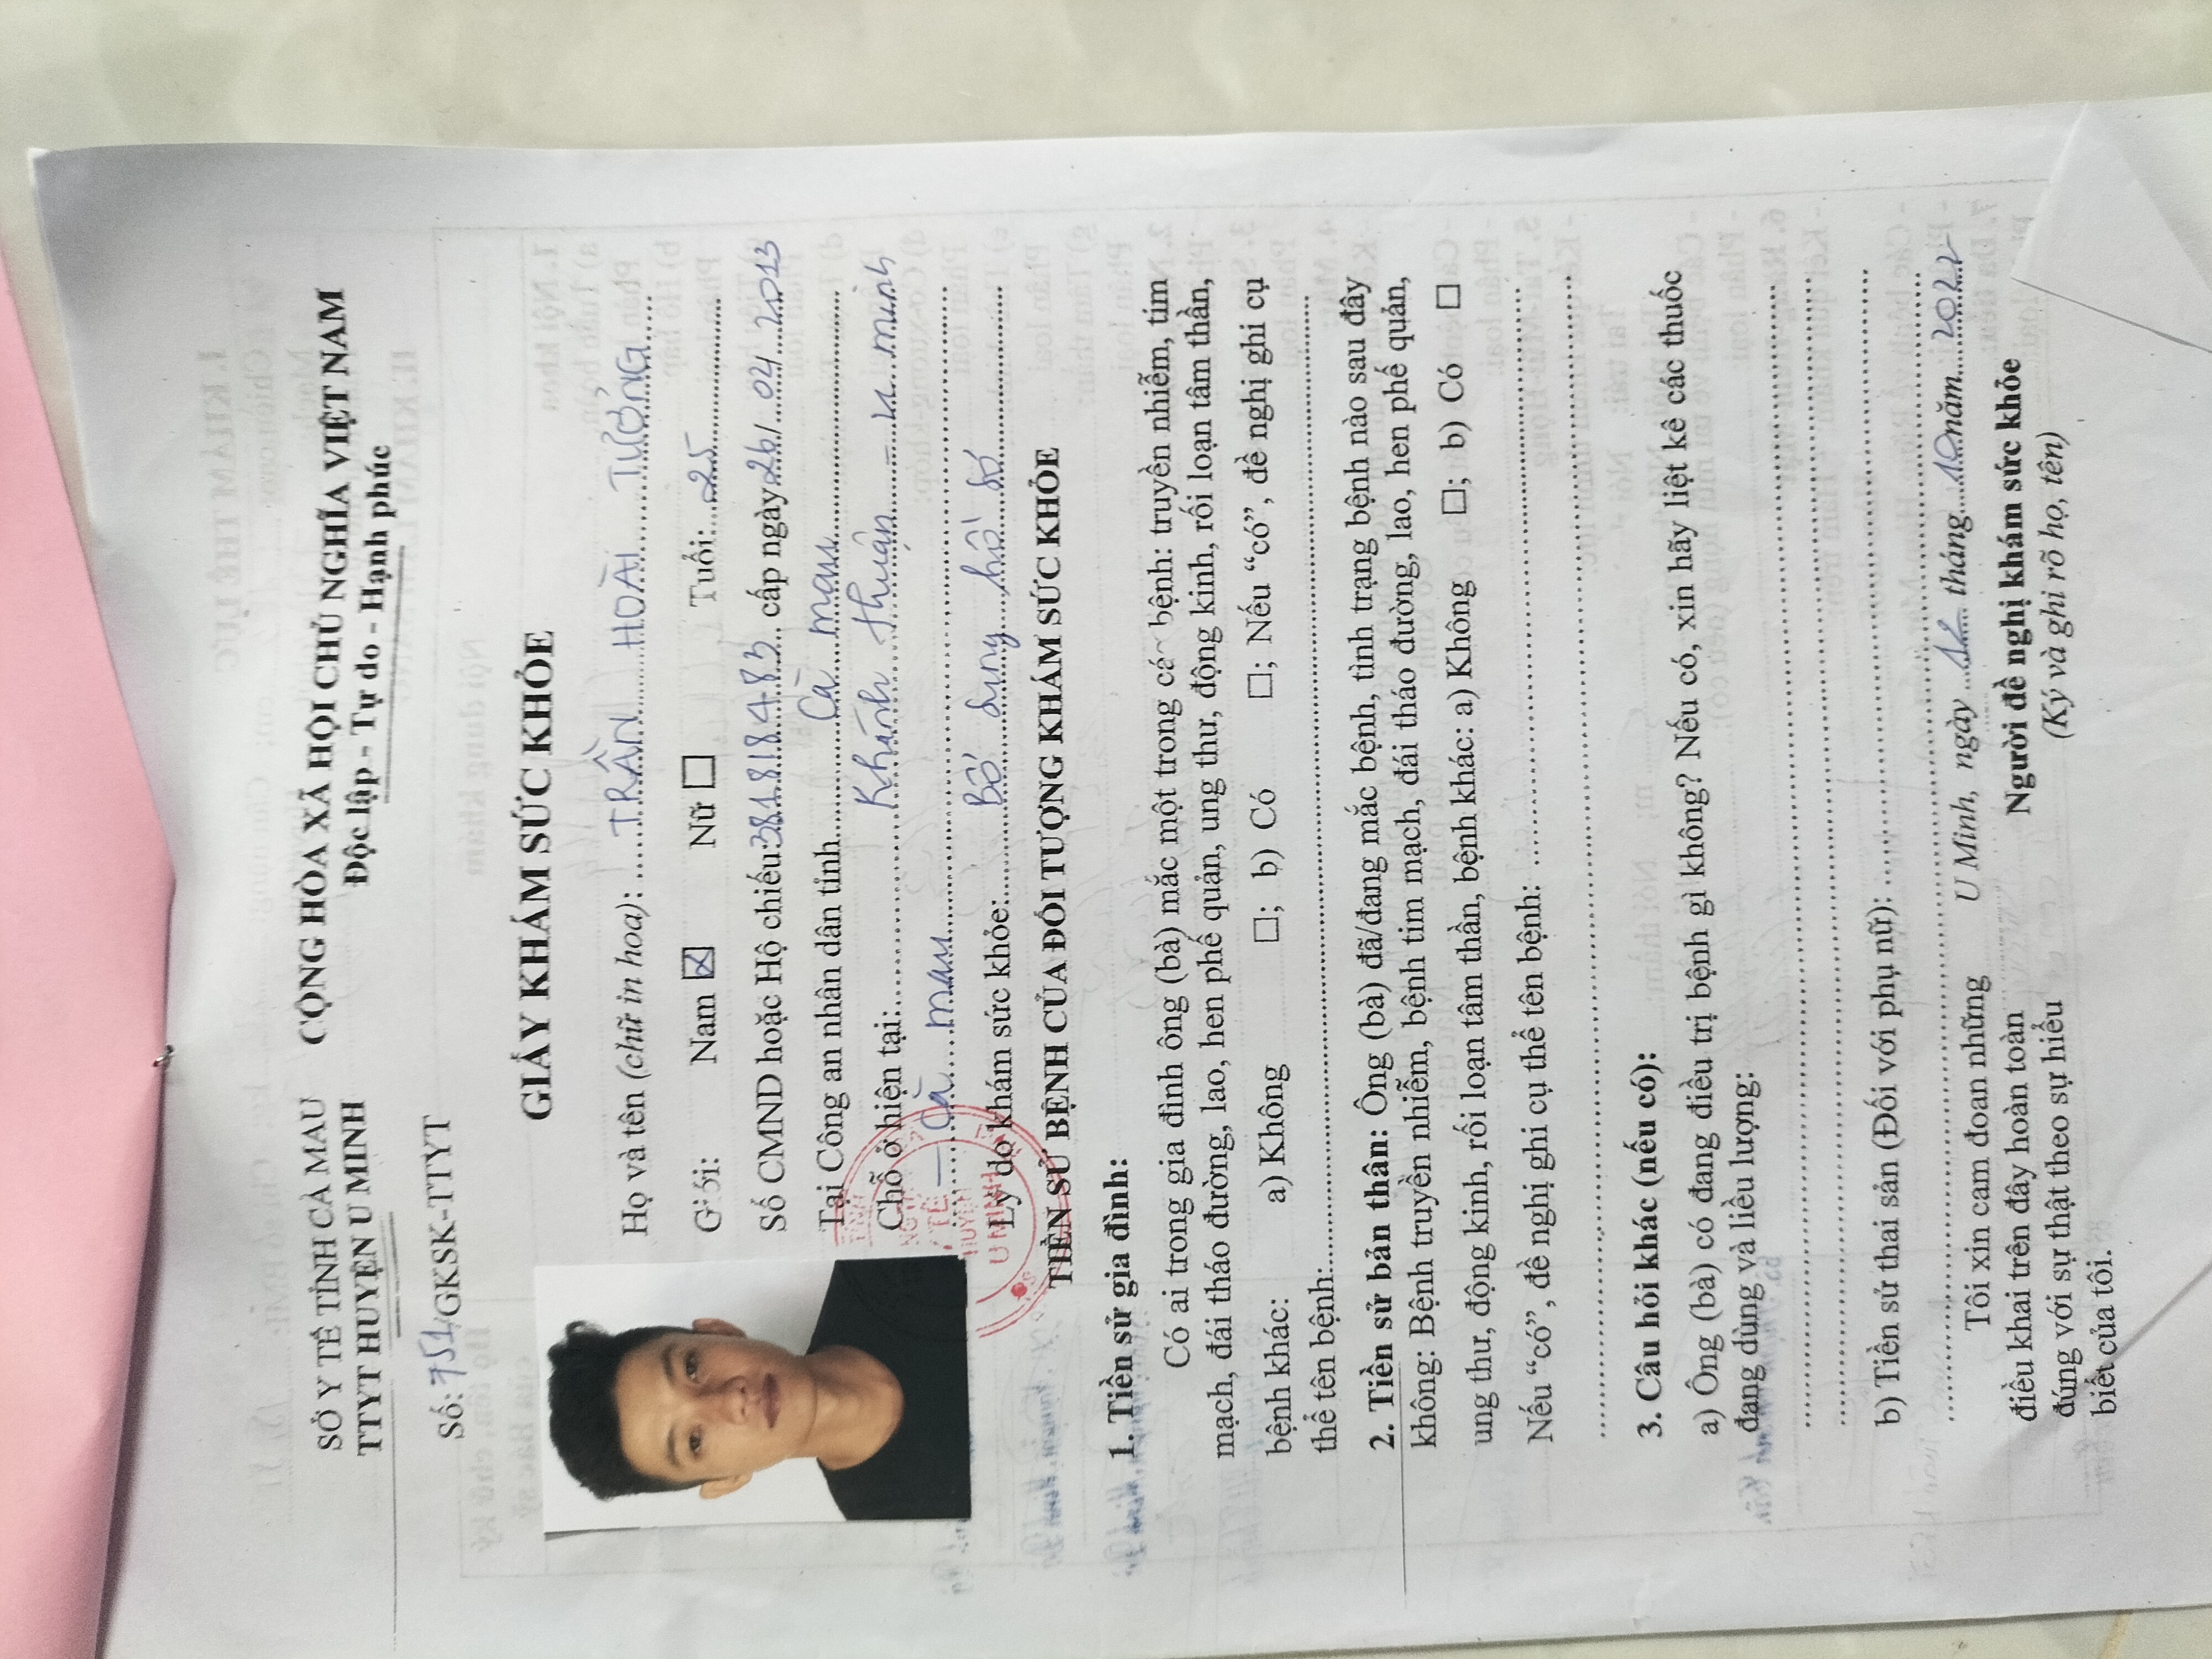 SỞ Y TẾ TỈNH CÀ MAU
TTYT HUYỆN U MINH
CỘNG HÒA XÃ HỘI CHỦ NGHĨA VIỆT NAM
Độc lập - Tự do - Hạnh phúc
Số: 751/GKSK-TTYT
GIẤY KHÁM SỨC KHỎE
Họ và tên (chữ in hoa): TRẦN HOÀI TƯỞNG
Giới: Nam ☒ Nữ ☐ Tuổi: 25
Số CMND hoặc Hộ chiếu: 381818483 cấp ngày 26/ 04 2013
Tại Công an nhân dân tỉnh Cà mau
Chỗ ở hiện tại: Khánh Thuận – u minh
– Cà mau
Lý do khám sức khỏe: Bổ sung hồ sơ
TIỀN SỬ BỆNH CỦA ĐỐI TƯỢNG KHÁM SỨC KHỎE
1. Tiền sử gia đình:
Có ai trong gia đình ông (bà) mắc một trong các bệnh: truyền nhiễm, tim
mạch, đái tháo đường, lao, hen phế quản, ung thư, động kinh, rối loạn tâm thần,
bệnh khác: a) Không ☐; b) Có ☐; Nếu “có”, đề nghị ghi cụ
thể tên bệnh:
2. Tiền sử bản thân: Ông (bà) đã/đang mắc bệnh, tình trạng bệnh nào sau đây
không: Bệnh truyền nhiễm, bệnh tim mạch, đái tháo đường, lao, hen phế quản,
ung thư, động kinh, rối loạn tâm thần, bệnh khác: a) Không ☐; b) Có ☐
Nếu “có”, đề nghị ghi cụ thể tên bệnh:
3. Câu hỏi khác (nếu có):
a) Ông (bà) có đang điều trị bệnh gì không? Nếu có, xin hãy liệt kê các thuốc
đang dùng và liều lượng:
b) Tiền sử thai sản (Đối với phụ nữ):
Tôi xin cam đoan những
điều khai trên đây hoàn toàn
đúng với sự thật theo sự hiểu
biết của tôi.
U Minh, ngày 12 tháng 10 năm 2022
Người đề nghị khám sức khỏe
(Ký và ghi rõ họ, tên)
HUYỆN
U MINH